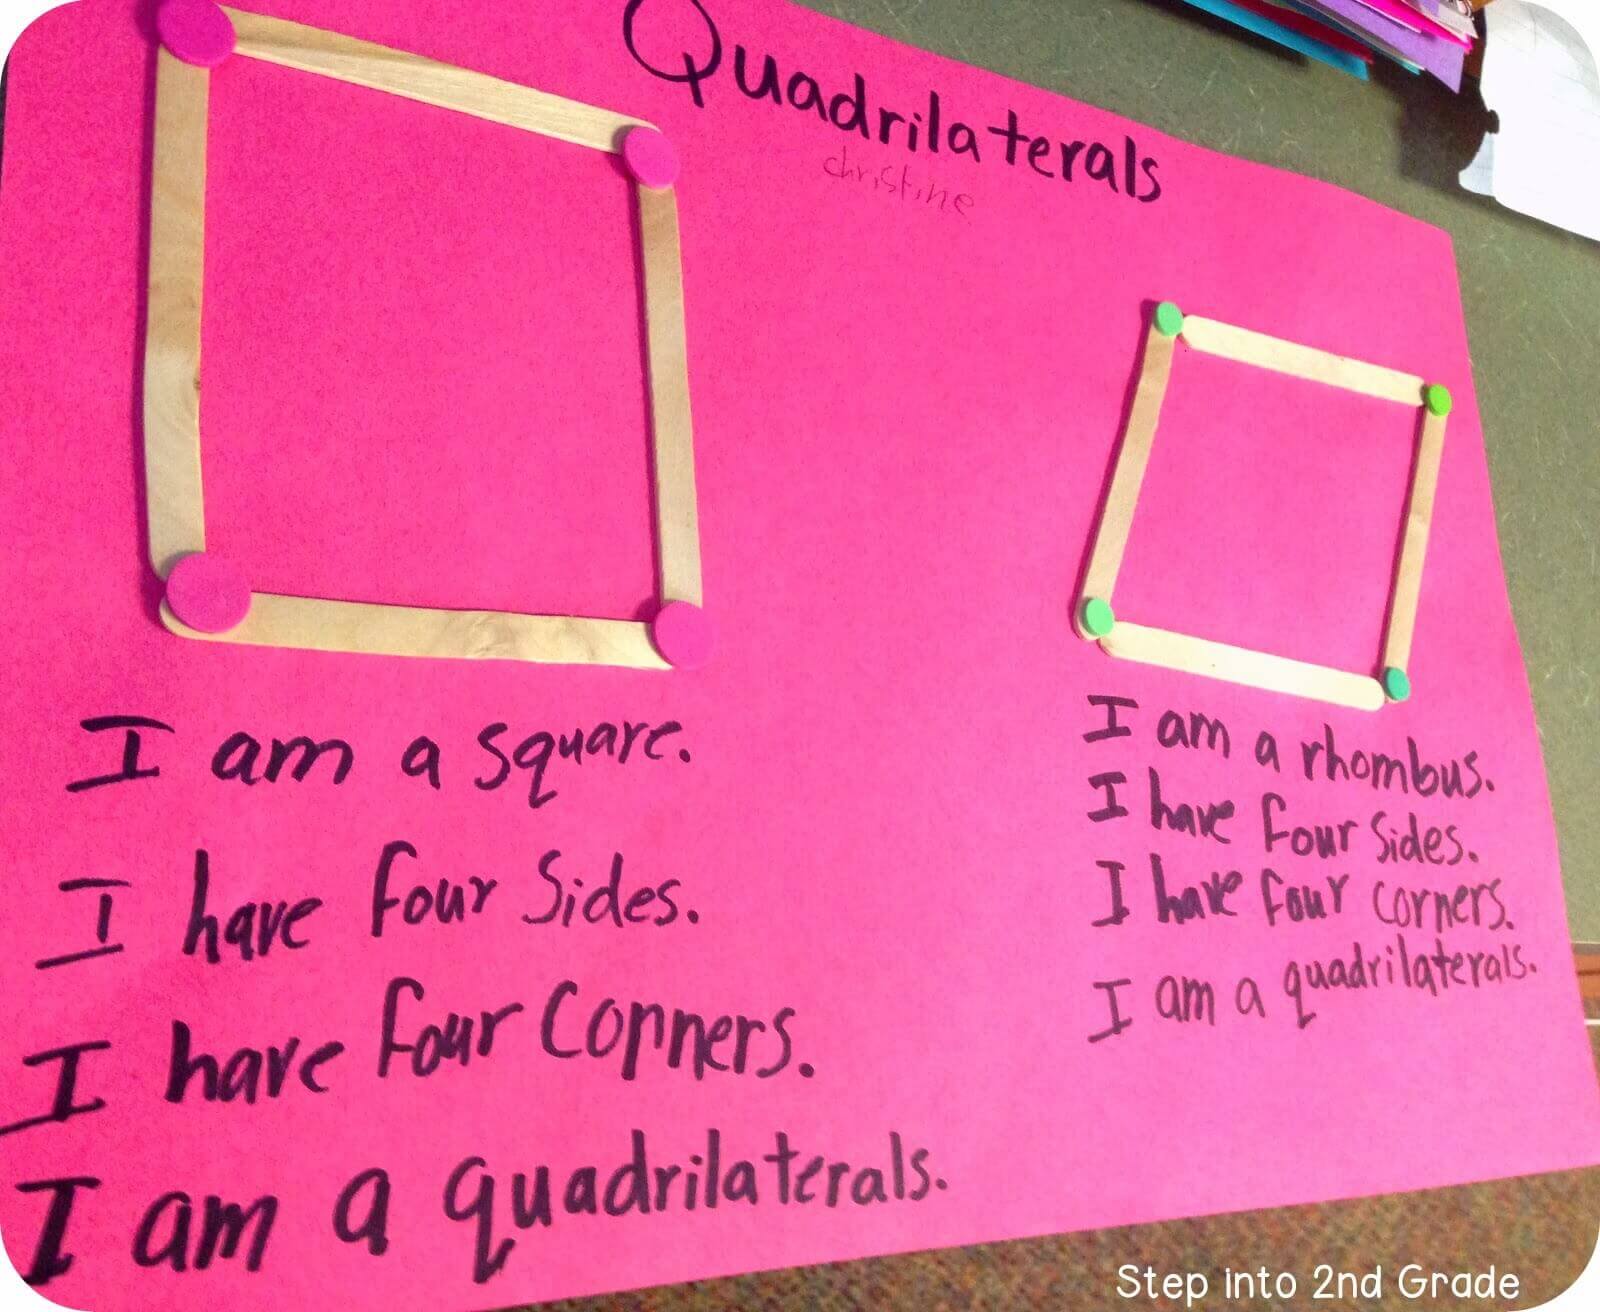 Quadrilaterals
christine
I am a square.
I have four sides.
I have four Corners.
I am a quadrilaterals.
I am a rhombus.
I have four sides.
I have four corners.
I am a quadrilaterals.
Step into 2nd Grade